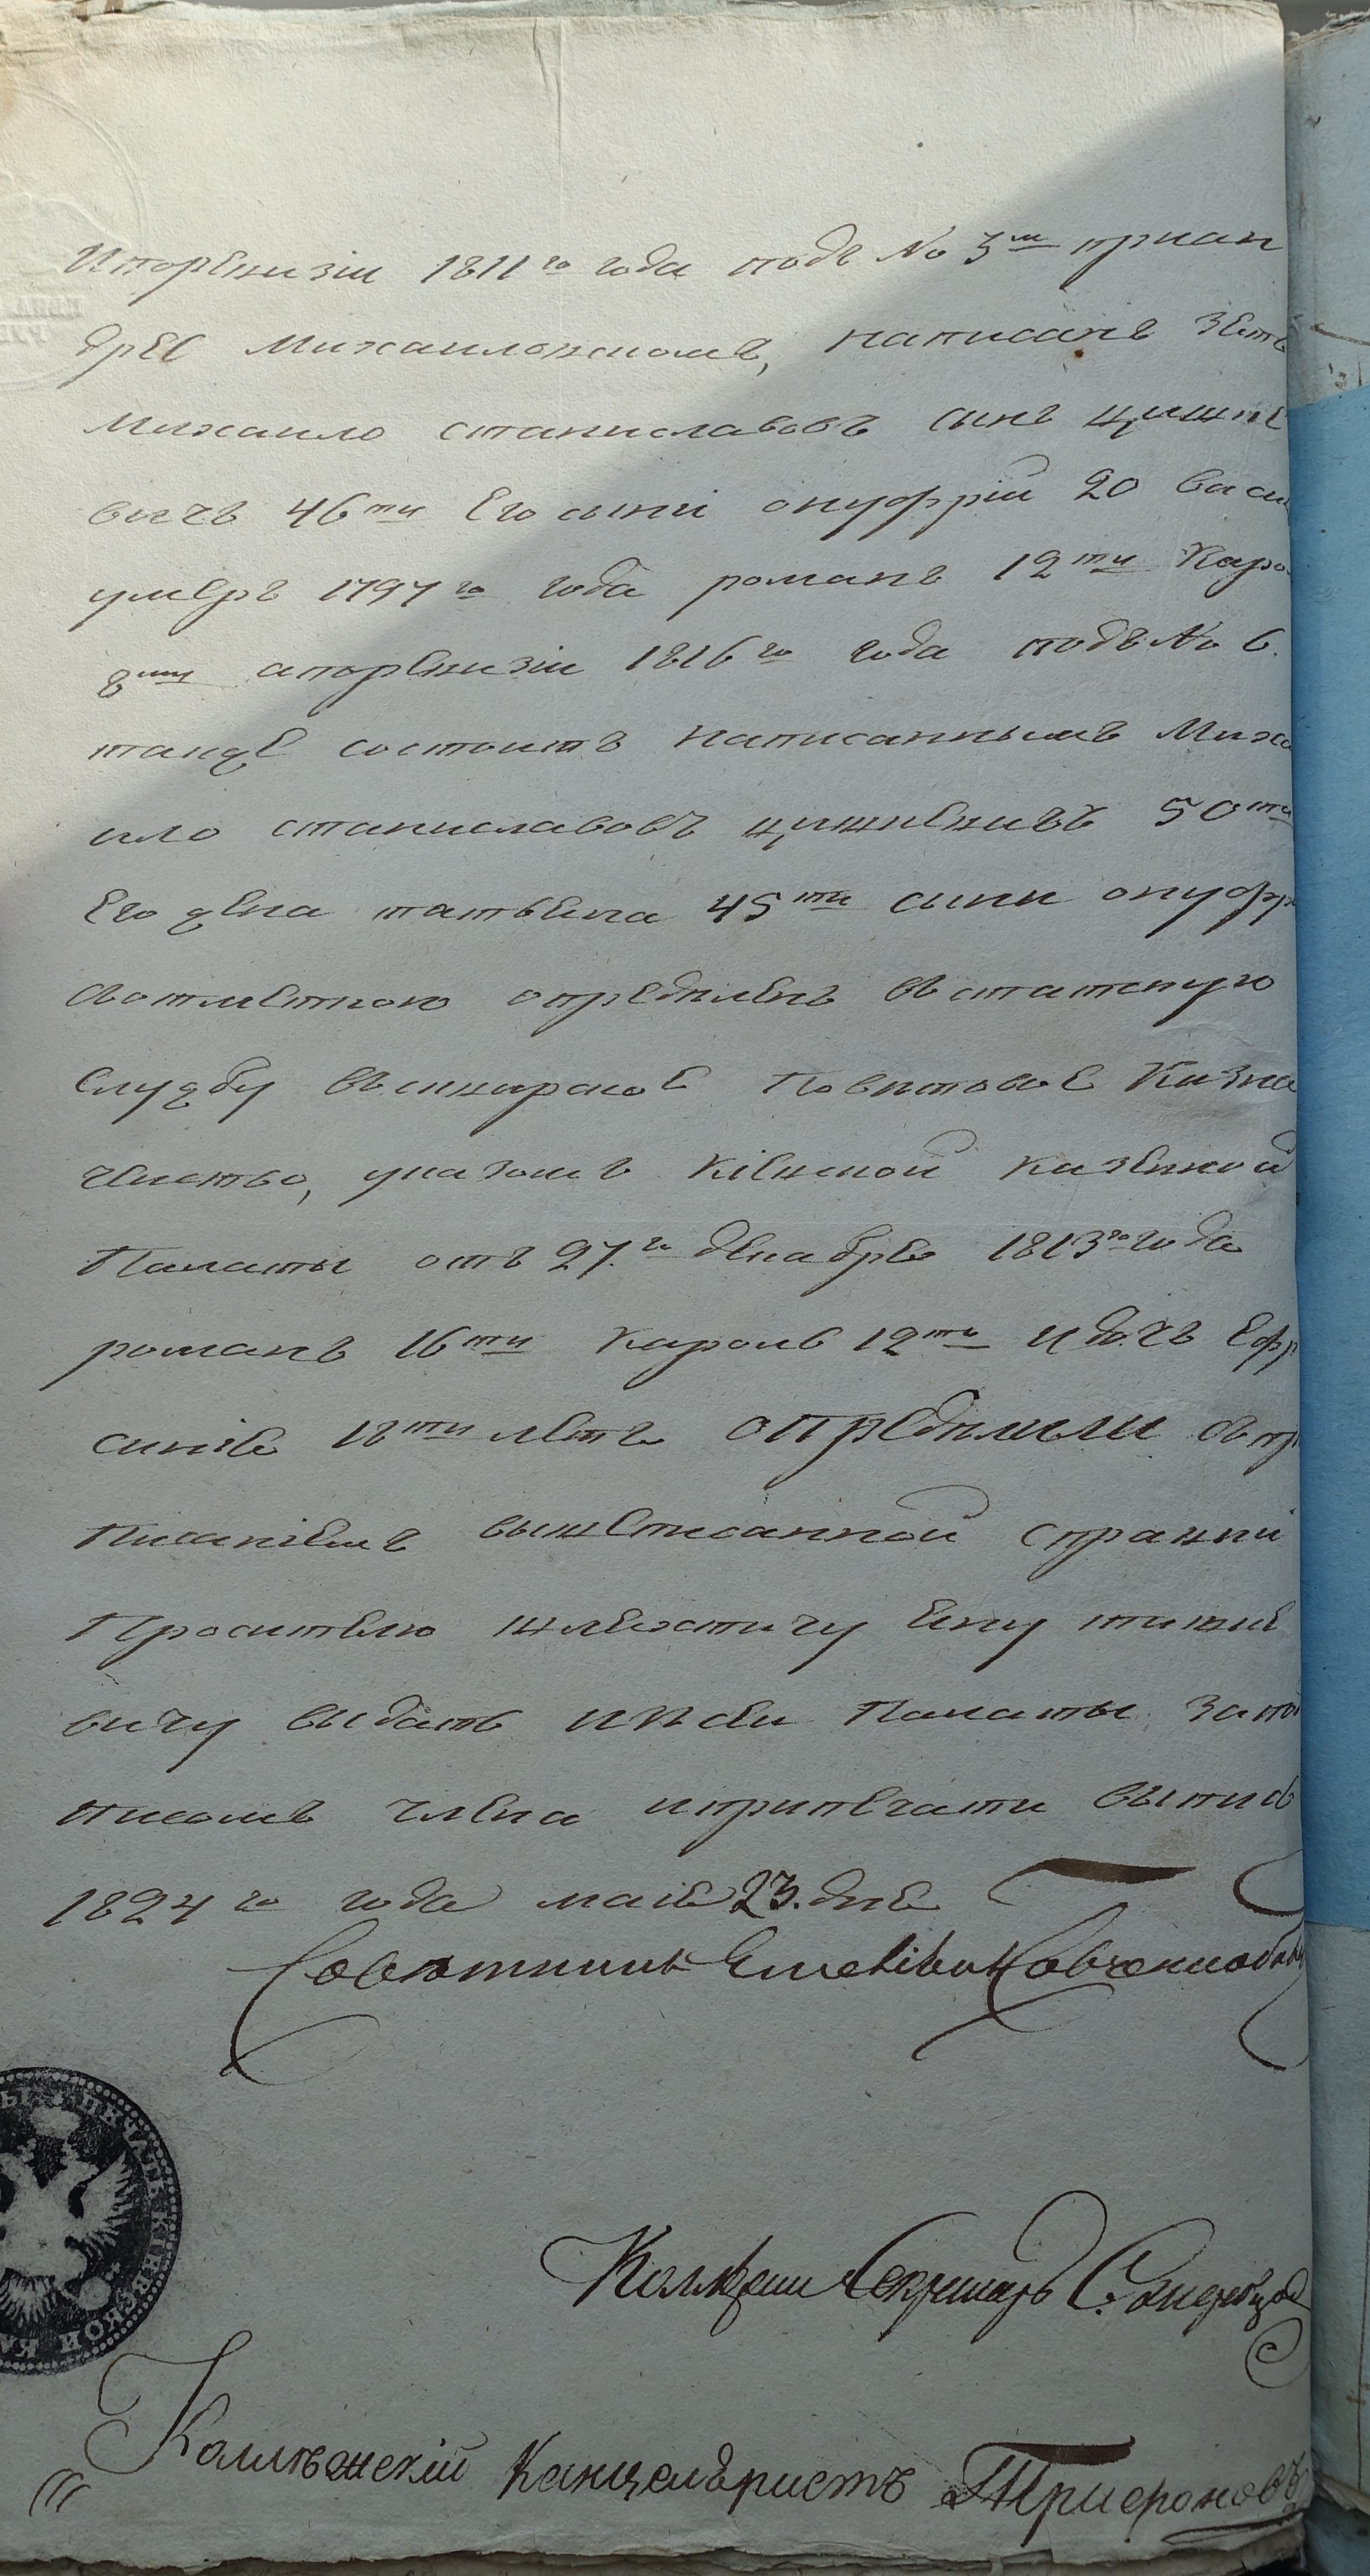 И поревизіи 1811го года подъ No 3м приан
дрее Михаиловскомъ, написанъ зять
Михаило станиславовъ сынъ цишке
вичъ 46ти Его сыни онуфрій 20 васи
умеръ 1797го года романъ 12ти Каро
8ми апоревизіи 1816го года подъ No 6.
тамже состоитъ написаннымъ Миха
ило станиславовъ цишкевичъ 50ти
Его жена татьяна 45ти сыни онуфр
сотметкою определенъ въ статскую
службу въсквирское Поветовое Казна
чейство, указомъ Кіевской казенной
Палаты отъ 27.го декабря 1813го года
романъ 16ти Кароль 12ти и дочъ Ефр
синія 18ти летъ определили съ пр
писаніемъ вышеписанной справки
Просителю шляхтичу Яну тишке
вичу выдать изсей Палаты за под
писомъ члена ипрпечати выписъ
1824го года маія 23. дня
Советникъ
Коллежски Секретарь
Коллежскій Канцеляристъ Трифоновъ